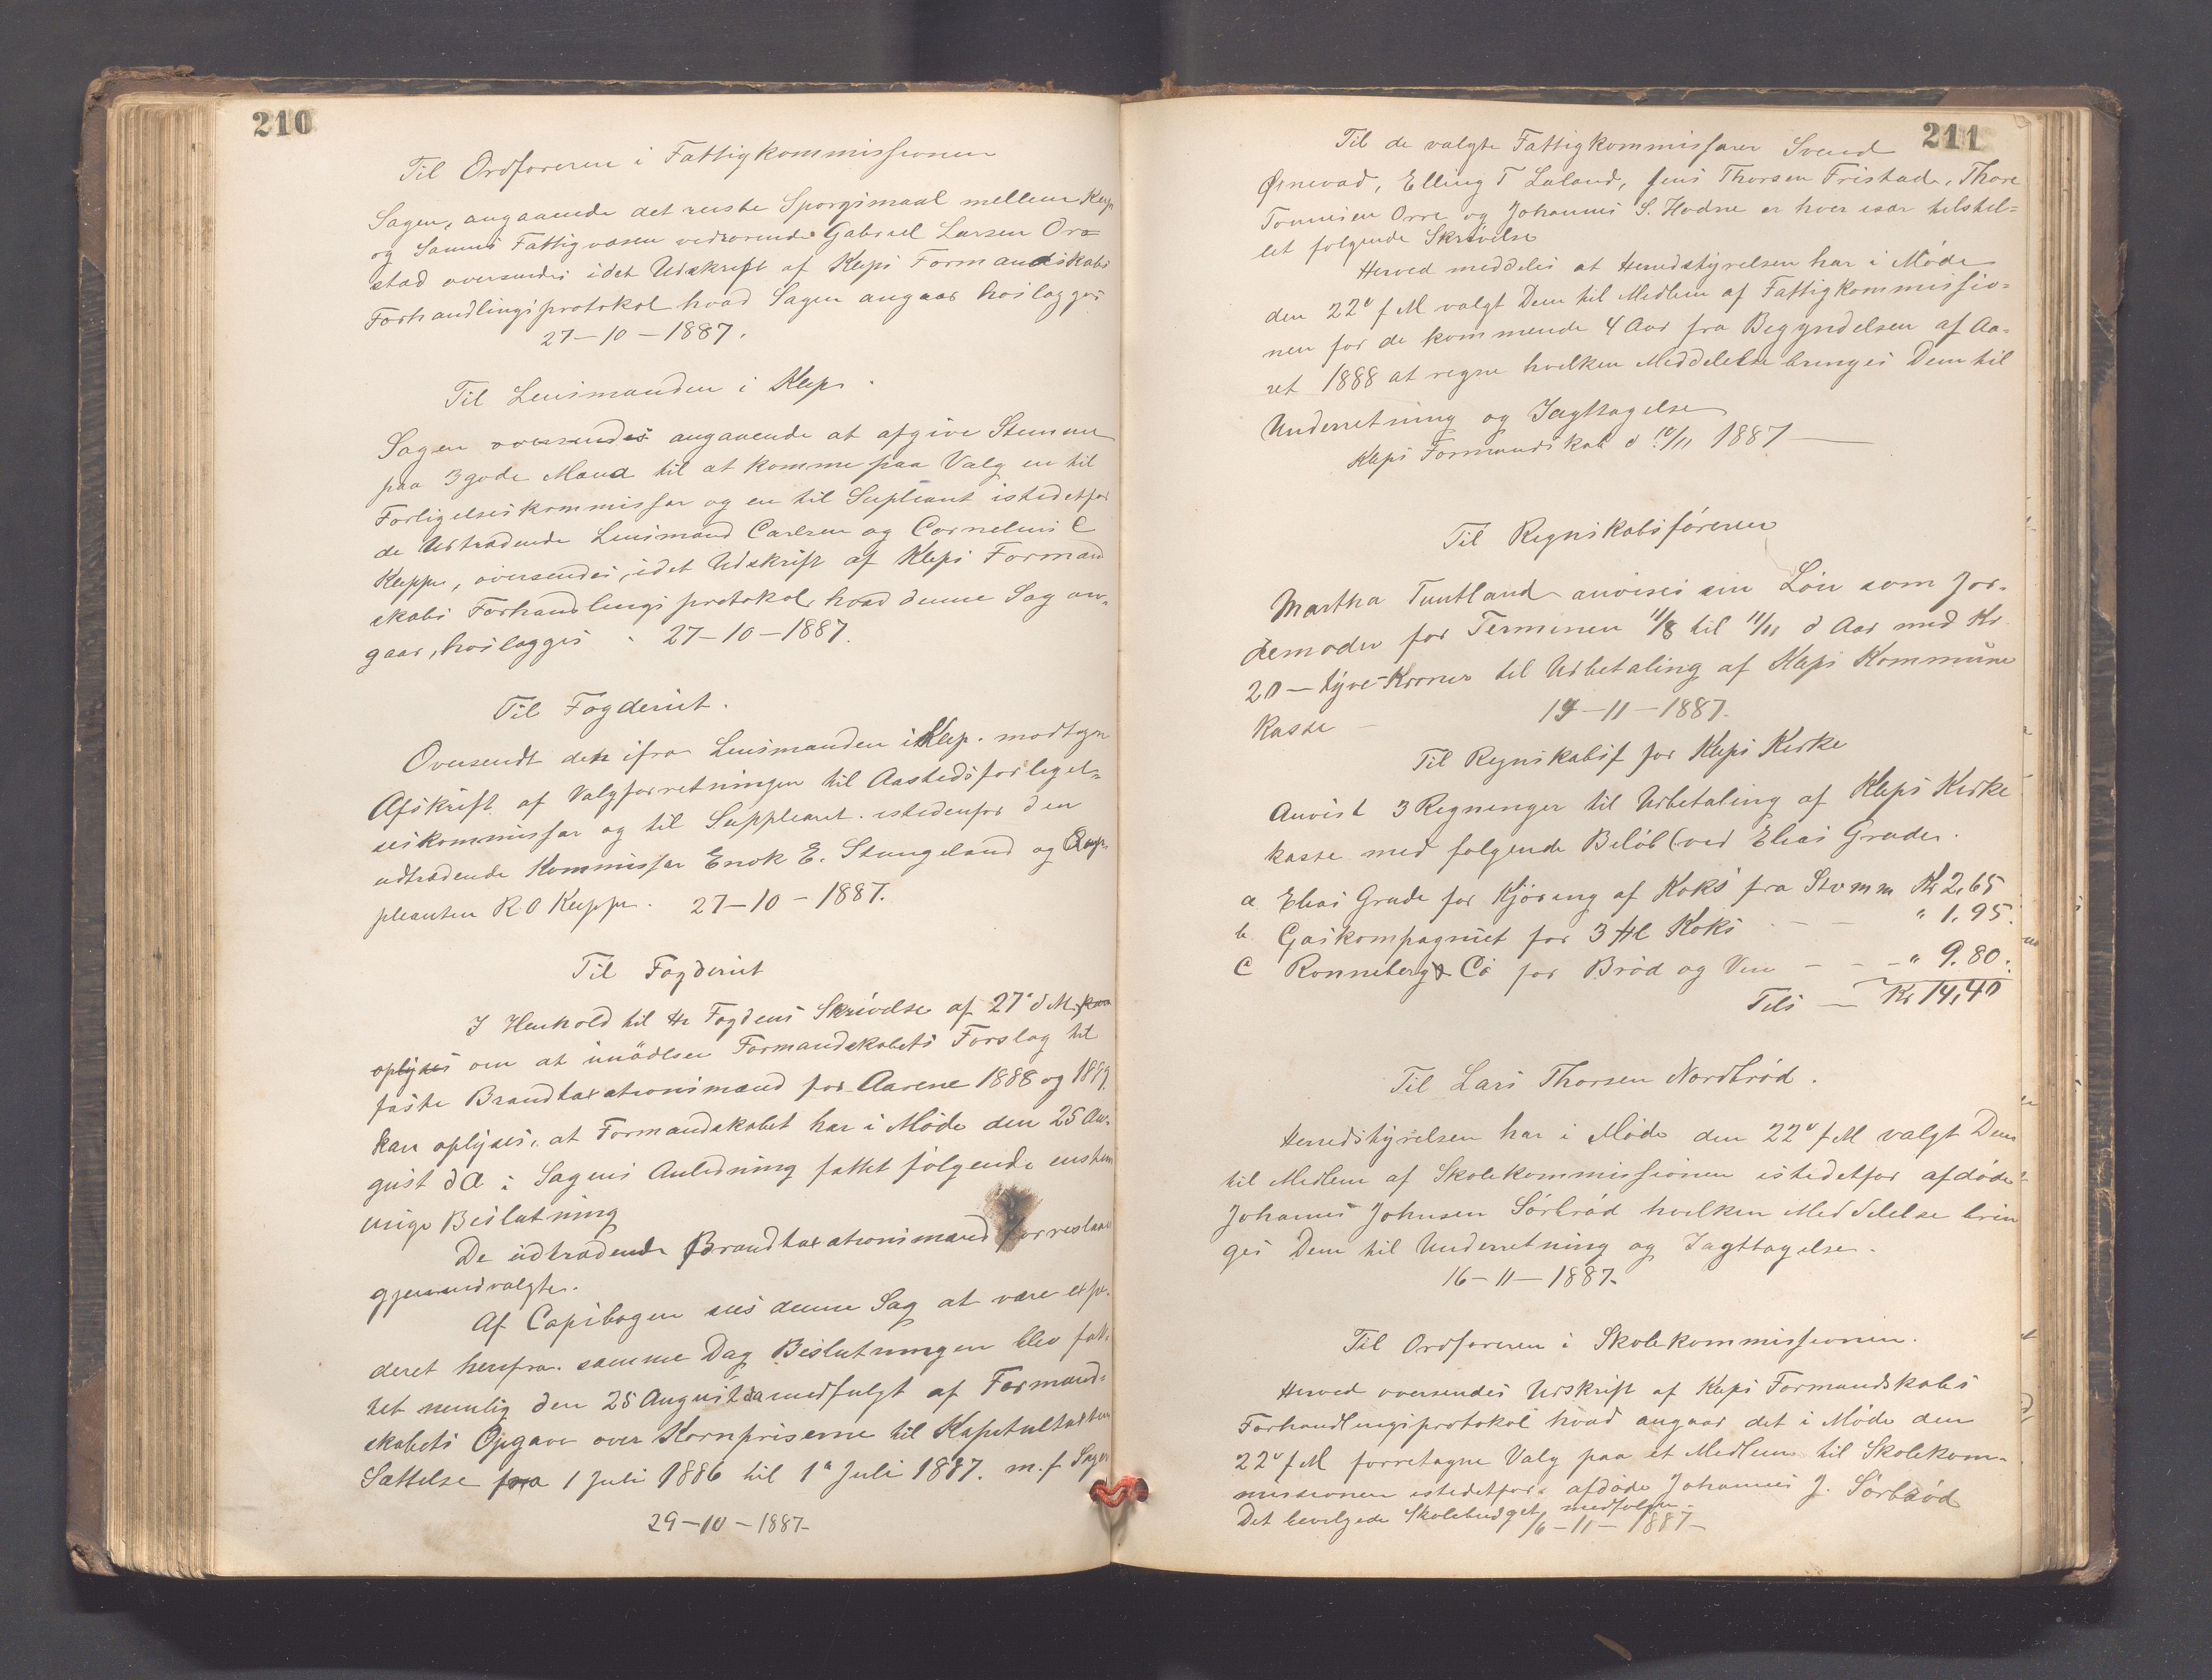 210
Til Ordføreren i Fattigkommissionen
Sagen, angaaende det reiste Sporgsmaal mellem Klep
og Sannes Fattigvæsen vedrorende Gabriel Larsen Ora=
stad oversendes idet Udskrift af Kleps Formandskabs
Forhandlingsprotokol hvad Sagen angaar hoslægges
27-10-1887.
Til Lensmanden i Klep.
Sagen oversendes angaaende at afgive Stemme
paa 3 gode Mænd til at komme paa Valg en til
Forligelseskommissær og en til Supleant istedetfor
de Udtrædende Lensmand Carlsen og Cornelius C
Kleppe, oversendes, idet Udskrift af Kleps Formand
skabs Forhandlings protokol, hvad denne Sag an-
gaar, hoslægges 27-10-1887.
Til Fogderiet.
Oversendt den ifra Lensmanden i Klep. modtagne
Afskrift af Valgforretningen til Aastedsforligel=
seskommissær og til Suppleant istedenfor den
udtrædende Kommissær Enok E. Stangeland og Sup-
pleanten R O Kleppe. 27-10-1887.
Til Fogderiet
I Henhold til Hr Fogdens Skrivelse af 27' d M. kan
oplyses om at innødlsen Formandskabets Forslag til
faste Brandtaxationsmænd for Aarene 1888 og 1889
kan oplyses, at Formandskabet har i Møde den 25 Au-
gust d A i Sagens Anledning fattet følgende enstem
mige Beslutning
De udtrædende Brandtaxationsmænd forreslaaes
gjenindvalgte.
Af Copibogen sees denne Sag at være expe-
deret herifra samme Dag Beslutningen blev fat-
tet nemlig den 25 August da medfulgt af Formand-
skabets Opgave over Kornpriserne til Kapitultaxten
Sættelse fra 1 Juli 1886 til 1ª Juli 1887. m. f Sagen
29-10-1887-
211
Til de valgte Fattigkommissærer Svend
Ørnevad, Elling T Laland, Jens Thorsen Fristad, Thore
Tonnesen Orre og Johannes S. Hodne er hver især tilstil=
let følgende Skrivelse
Herved meddeles at Herredstyrelsen har i Møde
den 22' f M valgt Dem til Medlem af Fattigkommissio=
nen for de kommende 4 Aar fra Begyndelsen af Aa-
ret 1888 at regne hvilken Meddelelse bringes Dem til
Underretning og Iagttagelse
Kleps Formandskab d 10/11 1887
Til Regnskabsføreren
Martha Tuntland anvises sin Løn som Jor-
demoder for Terminen 11/8 til 11/11 d Aar med Kr
20 - tyve Kroner til Udbetaling af Kleps Kommune
kasse -
14-11-1887.
Til Regnskabsf for Kleps Kirke
Anvist 3 Regninger til Udbetaling af Kleps Kirke
kasse med følgende Beløb (ved Elias Grude.
a Elias Grude for Kjøring af Koks fra Stvmm Kr 2,65
b Gaskompagniet for 3 Hl Koks - - " 1,95.
c Ronneberg & Co for Brød og Vin - - - " 9.80.
Tils - Kr 14,40
Til Lars Thorsen Nordbrød.
Herredstyrelsen har i Møde den 22' f M valgt Dem
til Medlem af Skolekommissionen istedetfor afdøde
Johannes Johnsen Sørbrød hvilken Meddelelse brin
ges Dem til Underretning og Iagttagelse.
16-11-1887.
Til Ordføreren i Skolekommissionen.
Herved oversendes Udskrift af Kleps Formandskabs
Forhandlingsprotokol hvad angaar det i Møde den
22' f M forretagne Valg paa et Medlem til Skolekom-
missionen istedetfor afdøde Johannes J. Sørbrød
Det bevilgede Skolebudget medfølger.
16-11-1887-